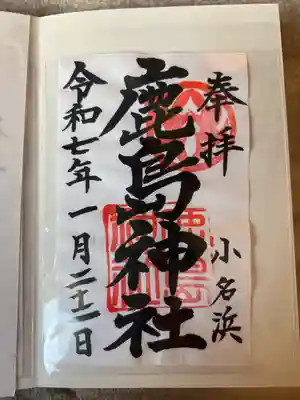 奉拝
小名浜
鹿島神社
令和七年一月二十二日